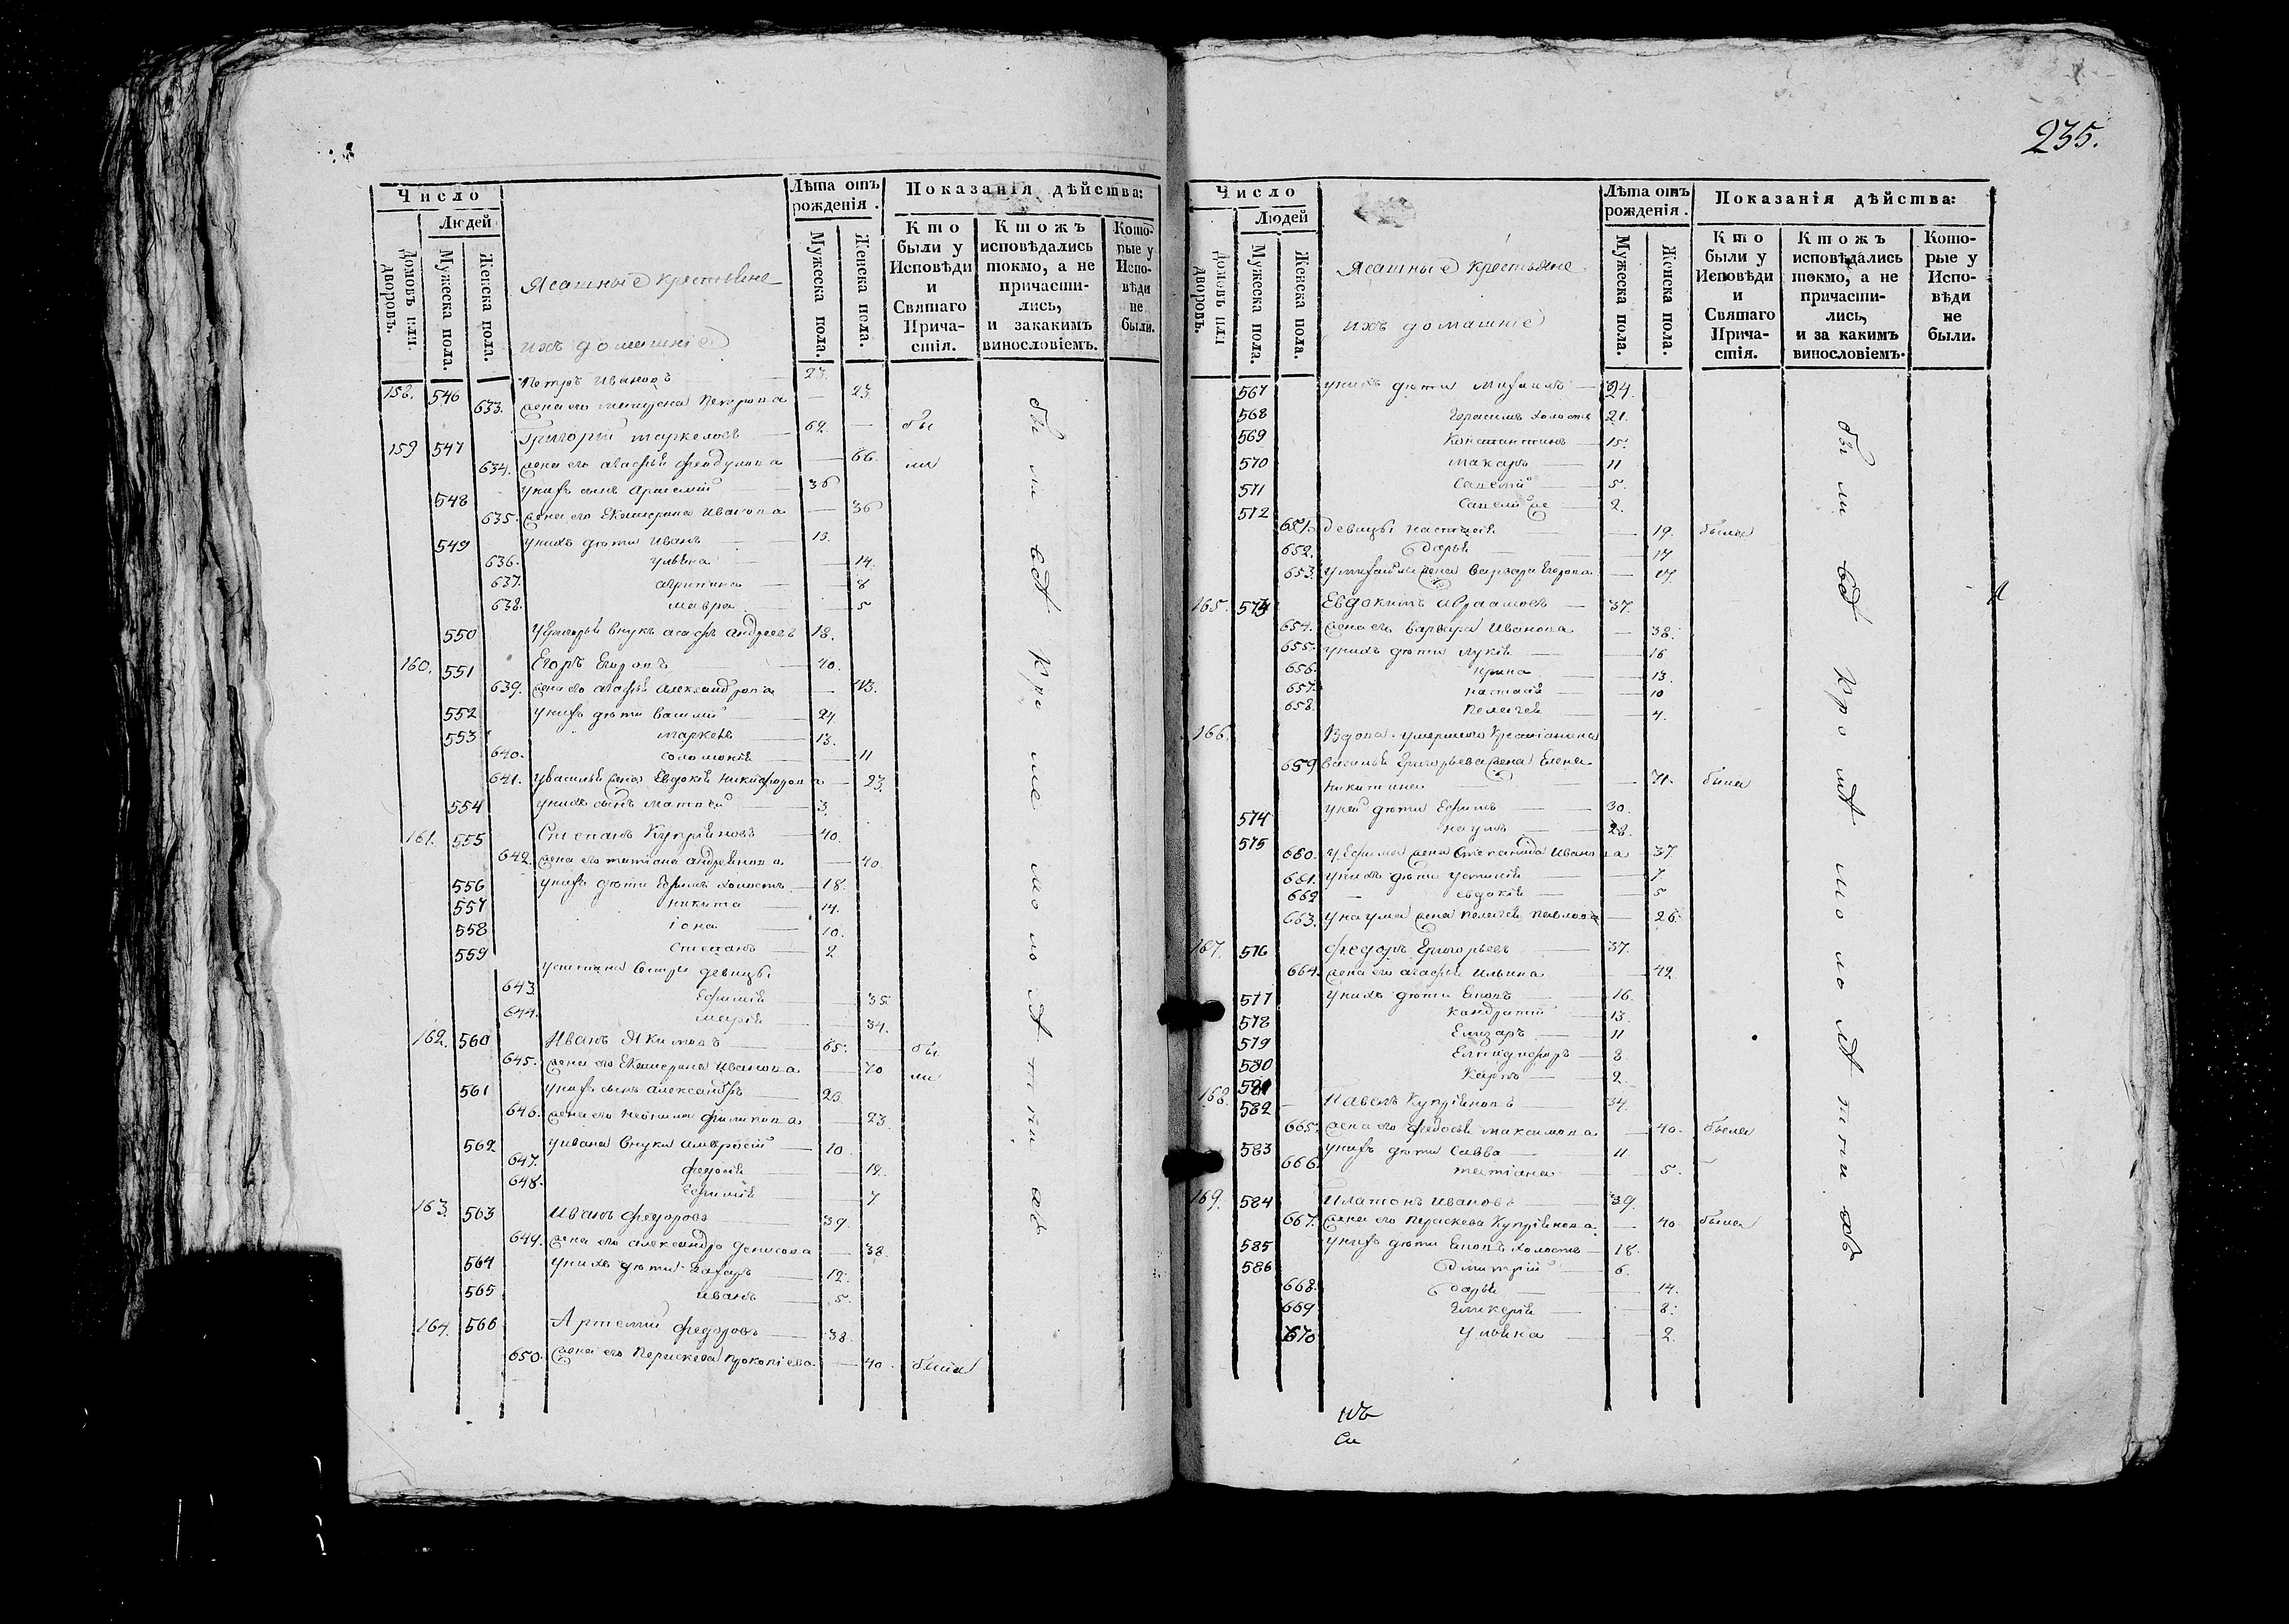 235.
Число
Людей
Домовъ или дворовъ.
Мужеска пола.
Женска пола.
Ясашные крестьяне
ихъ домашние
Лѣта отъ рожденія.
Мужеска пола.
Женска пола.
Показанія дѣйства:
Кто были у Исповѣди и Святаго Прича-стія.
Ктожъ исповѣдались токмо, а не причасти-лись, и закакимъ винословіемъ.
Кото-рые у Испо-вѣди не были.
158. 546 Петръ Ивановъ — 23.
633. жена его Петрова — 23
159 547 Григорий Маркеловъ — 62. — бы
634. жена его Агафья — 66. ли
548 у нихъ сынъ Артемий — 36
635. жена его Екатерина Иванова — 36
549 у нихъ дѣти Иванъ — 13.
636. Ульяна — 14.
637. Агрипина — 8
638. Мавра — 5
550 внукъ Андреевъ 18.
160. 551 Егоръ Егоровъ — 40.
639. жена его Агафья Александрова — 43.
552 у нихъ дѣти Василий — 24
553 Маркелъ — 13.
640. Соломония — 11
641. у Василья жена Евдокия Никифорова — 23.
554 у нихъ сынъ Матвей — 3.
161. 555 Степанъ Куприяновъ — 40.
642. жена его Татиана Андреянова — 40.
556 у нихъ дѣти Ефимъ холостъ — 18.
557 Никита — 14.
558 Iона — 10.
559 Степанъ — 2
у Степана сестры девицы
643 Ефимия — 35
644. Мария — 34.
162. 560 Иванъ Якимовъ — 65. — бы
645. жена его Екатерина Иванова — 70 ли
561 у нихъ сынъ Александръ — 23.
646. жена его Неонила Филипова — 23
562 у Ивана внуки — 10
647. Федосия — 12.
648. Ефимия — 7
163. 563 Иванъ Федоровъ — 39.
649. жена его Александра Денисова — 38.
564 у нихъ дѣти Захаръ — 12.
565 Иванъ — 5.
164. 566 Артемий Федоровъ — 38.
650. жена его Параскева Прокопиева — 40. была
Число
Людей
Домовъ или дворовъ.
Мужеска пола.
Женска пола.
Ясашные крестьяне
ихъ домашние
Лѣта отъ рожденія.
Мужеска пола.
Женска пола.
Показанія дѣйства:
Кто были у Исповѣди и Святаго Прича-стія.
Ктожъ исповѣдались токмо, а не причасти-лись, и за какимъ винословіемъ.
Кото-рые у Испо-вѣди не были.
567 у нихъ дѣти Михаилъ — 24.
568 Герасимъ холостъ 21.
569 Константинъ — 15.
570 Макаръ — 11
571 Савелий — 5.
572 Савелий же — 2.
651. девицы Настасия — 19. была
652. Дарья — 17
653. у Михайлы жена Варвара Егорова — 27.
165. 573 Евдокимъ Авраамовъ — 37.
654. жена его Варвара Иванова — 38.
655. у нихъ дѣти Лукия — 16
656. Ирина — 13.
657. Настасия — 10
658. Пелагея — 4.
166. Вдова умершаго крестианина
659 Василья Григорьева жена Елена
Никитина — 71. была
574 у ней дѣти Ефимъ — 30.
575 Наумъ — 28.
660. у Ефима жена Степанида Иванова — 37.
661. у нихъ дѣти Устиния — 7
662 — Евдокия — 5
663. у Наума жена Пелагея Павлова — 26.
167. 576 Федоръ Григорьевъ — 37.
664. жена его Агафья Ильина — 42.
577 у нихъ дѣти — 16.
578 Кондратий — 13.
579 Елизаръ — 11
580 Елпидифоръ — 8.
581 Карпъ — 2.
168. 582 — Павелъ Куприяновъ — 34.
665. жена его Федосья Максимова — 40. была
583 у нихъ дѣти Савва — 11
666. Татиана — 5.
169. 584 Платонъ Ивановъ — 39.
667. жена его Параскева Куприянова — 40 была
585 у нихъ дѣти холостъ — 18.
586 Димитрий — 6.
668. Дарья — 14.
669 Гликерия — 8.
670 Ульяна — 2.